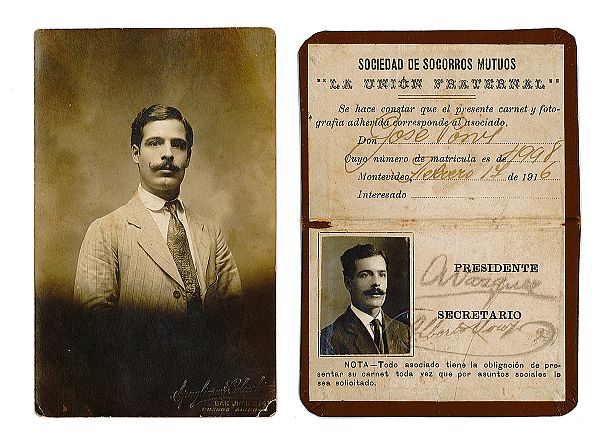 SAN JUAN
BUENOS AIRES
SOCIEDAD DE SOCORROS MUTUOS
"LA UNIÓN FRATERNAL"
Se hace constar que el presente carnet y foto-
grafia adherida corresponde al asociado.
Don José Pons
Cuyo número de matrícula es de 4998
Montevideo, febrero 14 de 1916
Interesado
PRESIDENTE
A Vazquez
SECRETARIO
Alberto
NOTA—Todo asociado tiene la obligación de pre-
sentar su carnet toda vez que por asuntos sociales le
sea solicitado.